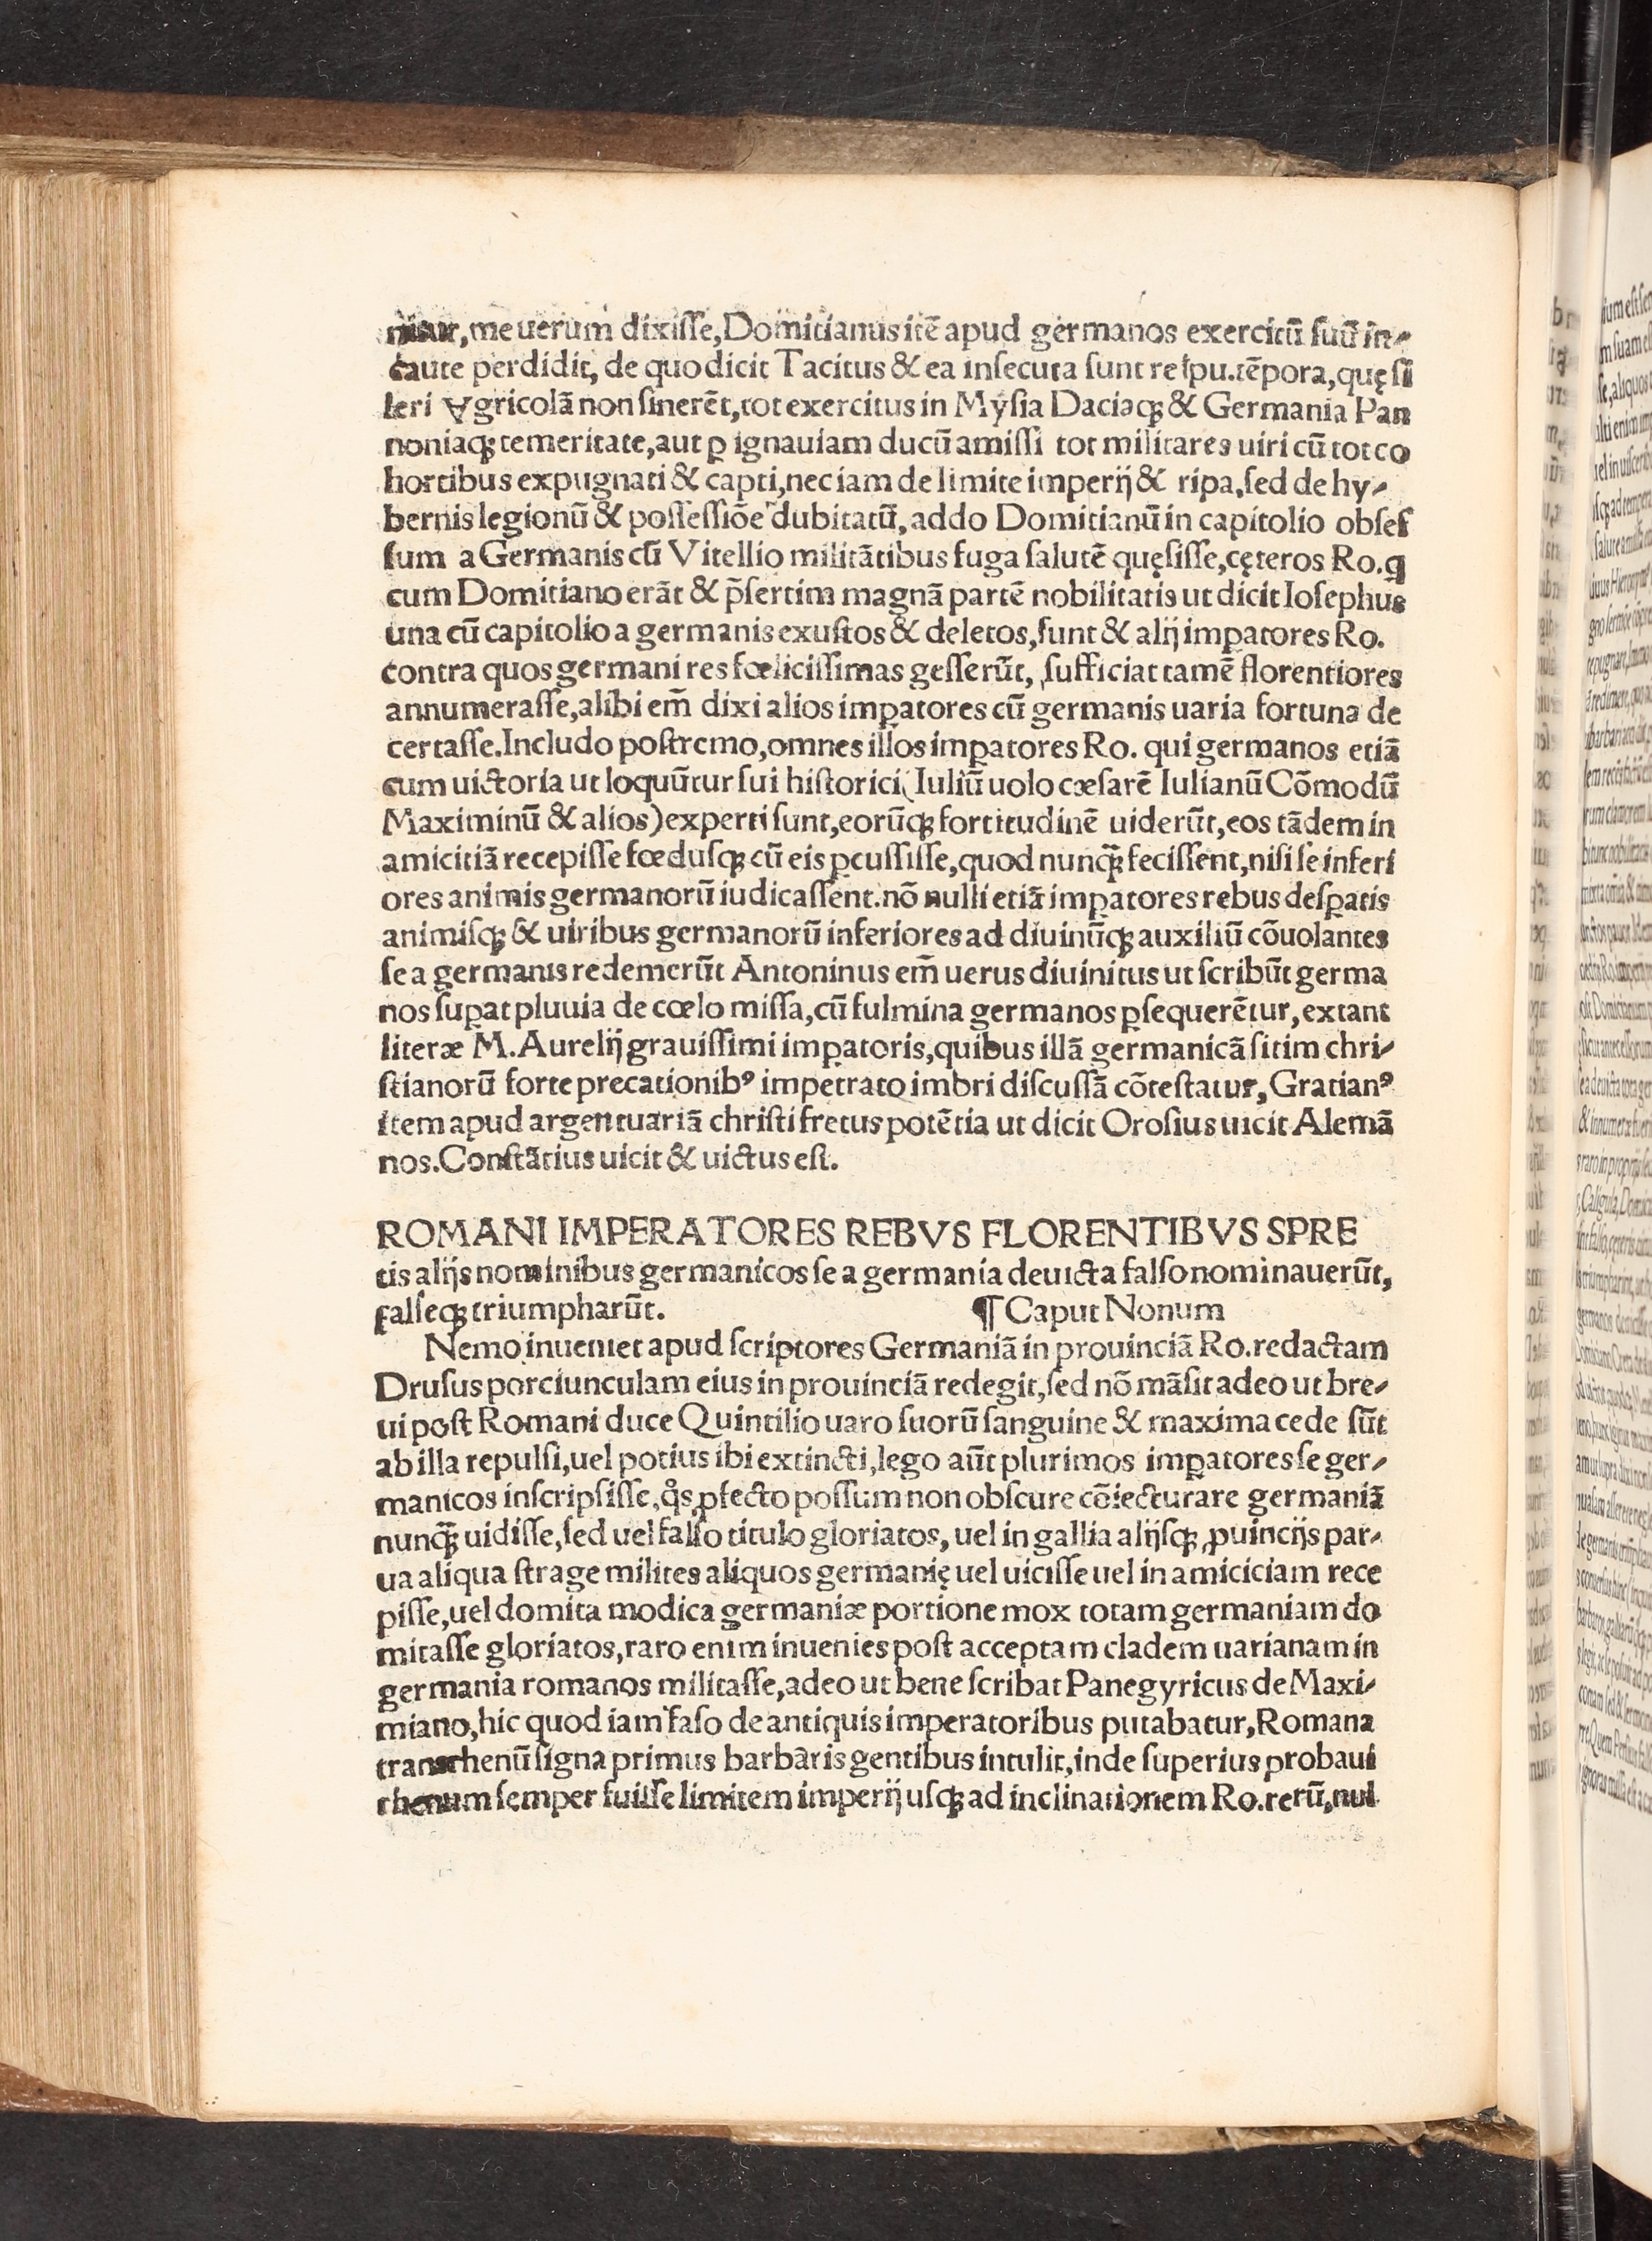 me uerum dixiſſe, Domitianus itē apud germanos exercitū ſuū in-
caute perdidit, de quo dicit Tacitus & ea inſecuta ſunt reſpu. tēpora, quę ſi
leri Agricolā non ſinerēt, tot exercitus in Myſia Daciaqꝫ & Germania Pan
noniaqꝫ temeritate, aut ꝑ ignauiam ducū amiſſi tot militares uiri cū tot co
hortibus expugnati & capti, nec iam de limite imperij & ripa, ſed de hy-
bernis legionū & poſſeſſiōe dubitatū, addo Domitianū in capitolio obſeſ
ſum a Germanis cū Vitellio militātibus fuga ſalutē quęſiſſe, cęteros Ro. ꝗ
cum Domitiano erāt & p̄ſertim magnā partē nobilitatis ut dicit Ioſephus
una cū capitolio a germanis exuſtos & deletos, ſunt & alij imꝑatores Ro.
contra quos germani res fœliciſſimas geſſerūt, ſufficiat tamē florentiores
annumeraſſe, alibi em̄ dixi alios imꝑatores cū germanis uaria fortuna de
certaſſe. Includo poſtremo, omnes illos imꝑatores Ro. qui germanos etiā
cum uictoria ut loquūtur ſui hiſtorici (Iuliū uolo cæſarē Iulianū Cōmodū
Maximinū & alios) experti ſunt, eorūqꝫ fortitudinē uiderūt, eos tādem in
amicitiā recepiſſe fœduſqꝫ cū eis ꝑcuſſiſſe, quod nunqꝫ̄ feciſſent, niſi ſe inferi
ores animis germanorū iudicaſſent. nō nulli etiā imꝑatores rebus deſꝑatis
animiſqꝫ & uiribus germanorū inferiores ad diuinūqꝫ auxiliū cōuolantes
ſe a germanis redemerūt Antoninus em̄ uerus diuinitus ut ſcribūt germa
nos ſuꝑat pluuia de cœlo miſſa, cū fulmina germanos ꝑſequerētur, extant
literæ M. Aurelij grauiſſimi imꝑatoris, quibus illā germanicā ſitim chri-
ſtianorū forte precationibꝰ impetrato imbri diſcuſſā cōteſtatur, Gratianꝰ
item apud argentuariā chriſti fretus potētia ut dicit Oroſius uicit Alemā
nos. Conſtātius uicit & uictus eſt.
ROMANI IMPERATORES REBVS FLORENTIBVS SPRE
tis alijs nominibus germanicos ſe a germania deuicta falſo nominauerūt,
falſeqꝫ triumpharūt. ¶ Caput Nonum
Nemo inueniet apud ſcriptores Germaniā in prouinciā Ro. redactam
Druſus porciunculam eius in prouinciā redegit, ſed nō māſit adeo ut bre-
ui poſt Romani duce Quintilio uaro ſuorū ſanguine & maxima cede ſūt
ab illa repulſi, uel potius ibi extincti, lego aūt plurimos imꝑatores ſe ger-
manicos inſcripſiſſe, qͦs ꝓfecto poſſum non obſcure cōiecturare germaniā
nunqꝫ̄ uidiſſe, ſed uel falſo titulo gloriatos, uel in gallia alijſqꝫ ꝓuincijs par-
ua aliqua ſtrage milites aliquos germanię uel uiciſſe uel in amiciciam rece
piſſe, uel domita modica germaniæ portione mox totam germaniam do
mitaſſe gloriatos, raro enim inuenies poſt acceptam cladem uarianam in
germania romanos militaſſe, adeo ut bene ſcribat Panegyricus de Maxi-
miano, hic quod iam faſo de antiquis imperatoribus putabatur, Romana
transrhenū ſigna primus barbaris gentibus intulit, inde ſuperius probaui
rhenum ſemper fuiſſe limitem imperij uſqꝫ ad inclinationem Ro. rerū, nul